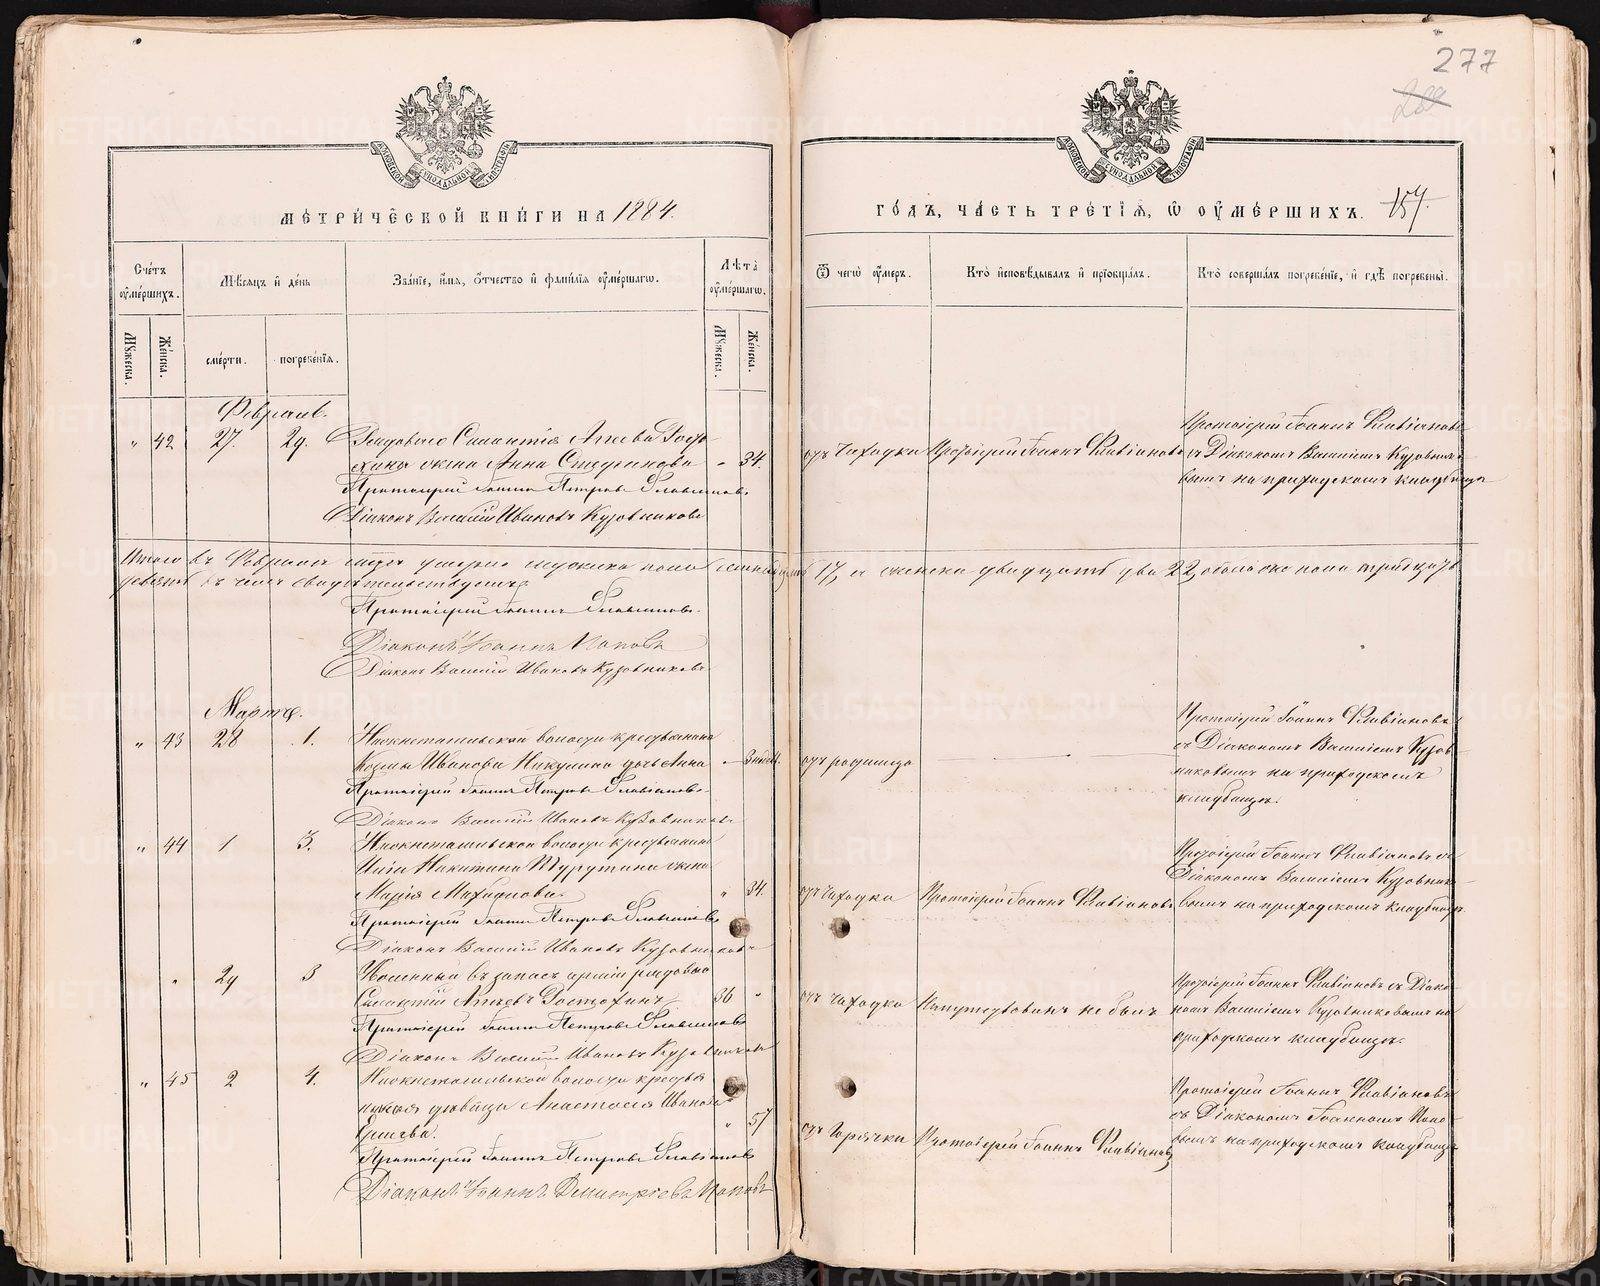 277
МЕТРИЧЕСКОЙ КНИГИ НА 1884.
ГОДЪ, ЧАСТЬ ТРЕТІЯ, Ѡ ОУМЕРШИХЪ. 157.
Счетъ оумершихъ.
Мѣсяцъ и день
Званіе, имя, отчество и фамилія оумершагѡ.
Лѣта оумершагѡ.
Ѿ чегѡ оумеръ.
Кто исповѣдывалъ и пріобщалъ.
Кто совершалъ погребеніе, и гдѣ погребены.
Мужеска.
Женска.
смерти.
погребенія.
Мужеска.
Женска.
Февраль.
" 42 27. 29.
жена Анна
" 34.
отъ чахотки
Протоіерей Іоаннъ Флавіановъ
Протоіерей Іоаннъ Флавіановъ
съ Діакономъ Василіемъ Кузовнико-
вымъ на приходскомъ кладбищѣ
Протоіерей Іоаннъ Петровъ Флавіановъ
Діаконъ Василій Ивановъ Кузовниковъ
Итого въ Февралѣ умерло мужеска пола семнадцать 17, а женска двадцать два 22, обоего пола тридцать
девять въ чемъ свидѣтельствуемъ
Протоіерей Іоаннъ Флавіановъ.
Діаконъ Іоаннъ Поповъ
Діаконъ Василій Ивановъ Кузовниковъ
Мартъ.
" 43 28 1.
Нижнетагильской волости крестьянина
Козмы Иванова Никулина дочь Анна
отъ родимца
Протоіерей Іоаннъ Флавіановъ
съ Діакономъ Василіемъ Кузов-
никовымъ на приходскомъ
кладбищѣ.
Протоіерей Іоаннъ Петровъ Флавіановъ
Діаконъ Василій Ивановъ Кузовниковъ
" 44 1 3.
Нижнетагильской волости крестьянина
Никитина жена
Марія
" 34.
отъ чахотки
Протоіерей Іоаннъ Флавіановъ
Протоіерей Іоаннъ Флавіановъ съ
Діакономъ Василіемъ Кузовнико-
вымъ на приходскомъ кладбищѣ
Протоіерей Іоаннъ Петровъ Флавіановъ
Діаконъ Василій Ивановъ Кузовниковъ
" 29 3
Уволенный въ запасъ арміи рядовой
36 "
отъ чахотки
Напутствованъ не былъ
Протоіерей Іоаннъ Флавіановъ съ Діако-
номъ Василіемъ Кузовниковымъ на
приходскомъ кладбищѣ.
Протоіерей Іоаннъ Петровъ Флавіановъ
Діаконъ Василій Ивановъ Кузовниковъ
" 45 2 4.
Нижнетагильской волости крестья
нская дѣвица Анастасія Иванова
Ершева.
" 57
отъ горячки
Протоіерей Іоаннъ Флавіановъ
Протоіерей Іоаннъ Флавіановъ
съ Діакономъ Іоанномъ Попо-
вымъ на приходскомъ кладбищѣ
Протоіерей Іоаннъ Петровъ Флавіановъ
Діаконъ Іоаннъ Димитріевъ Поповъ
METRIKI.GASO-URAL.RU